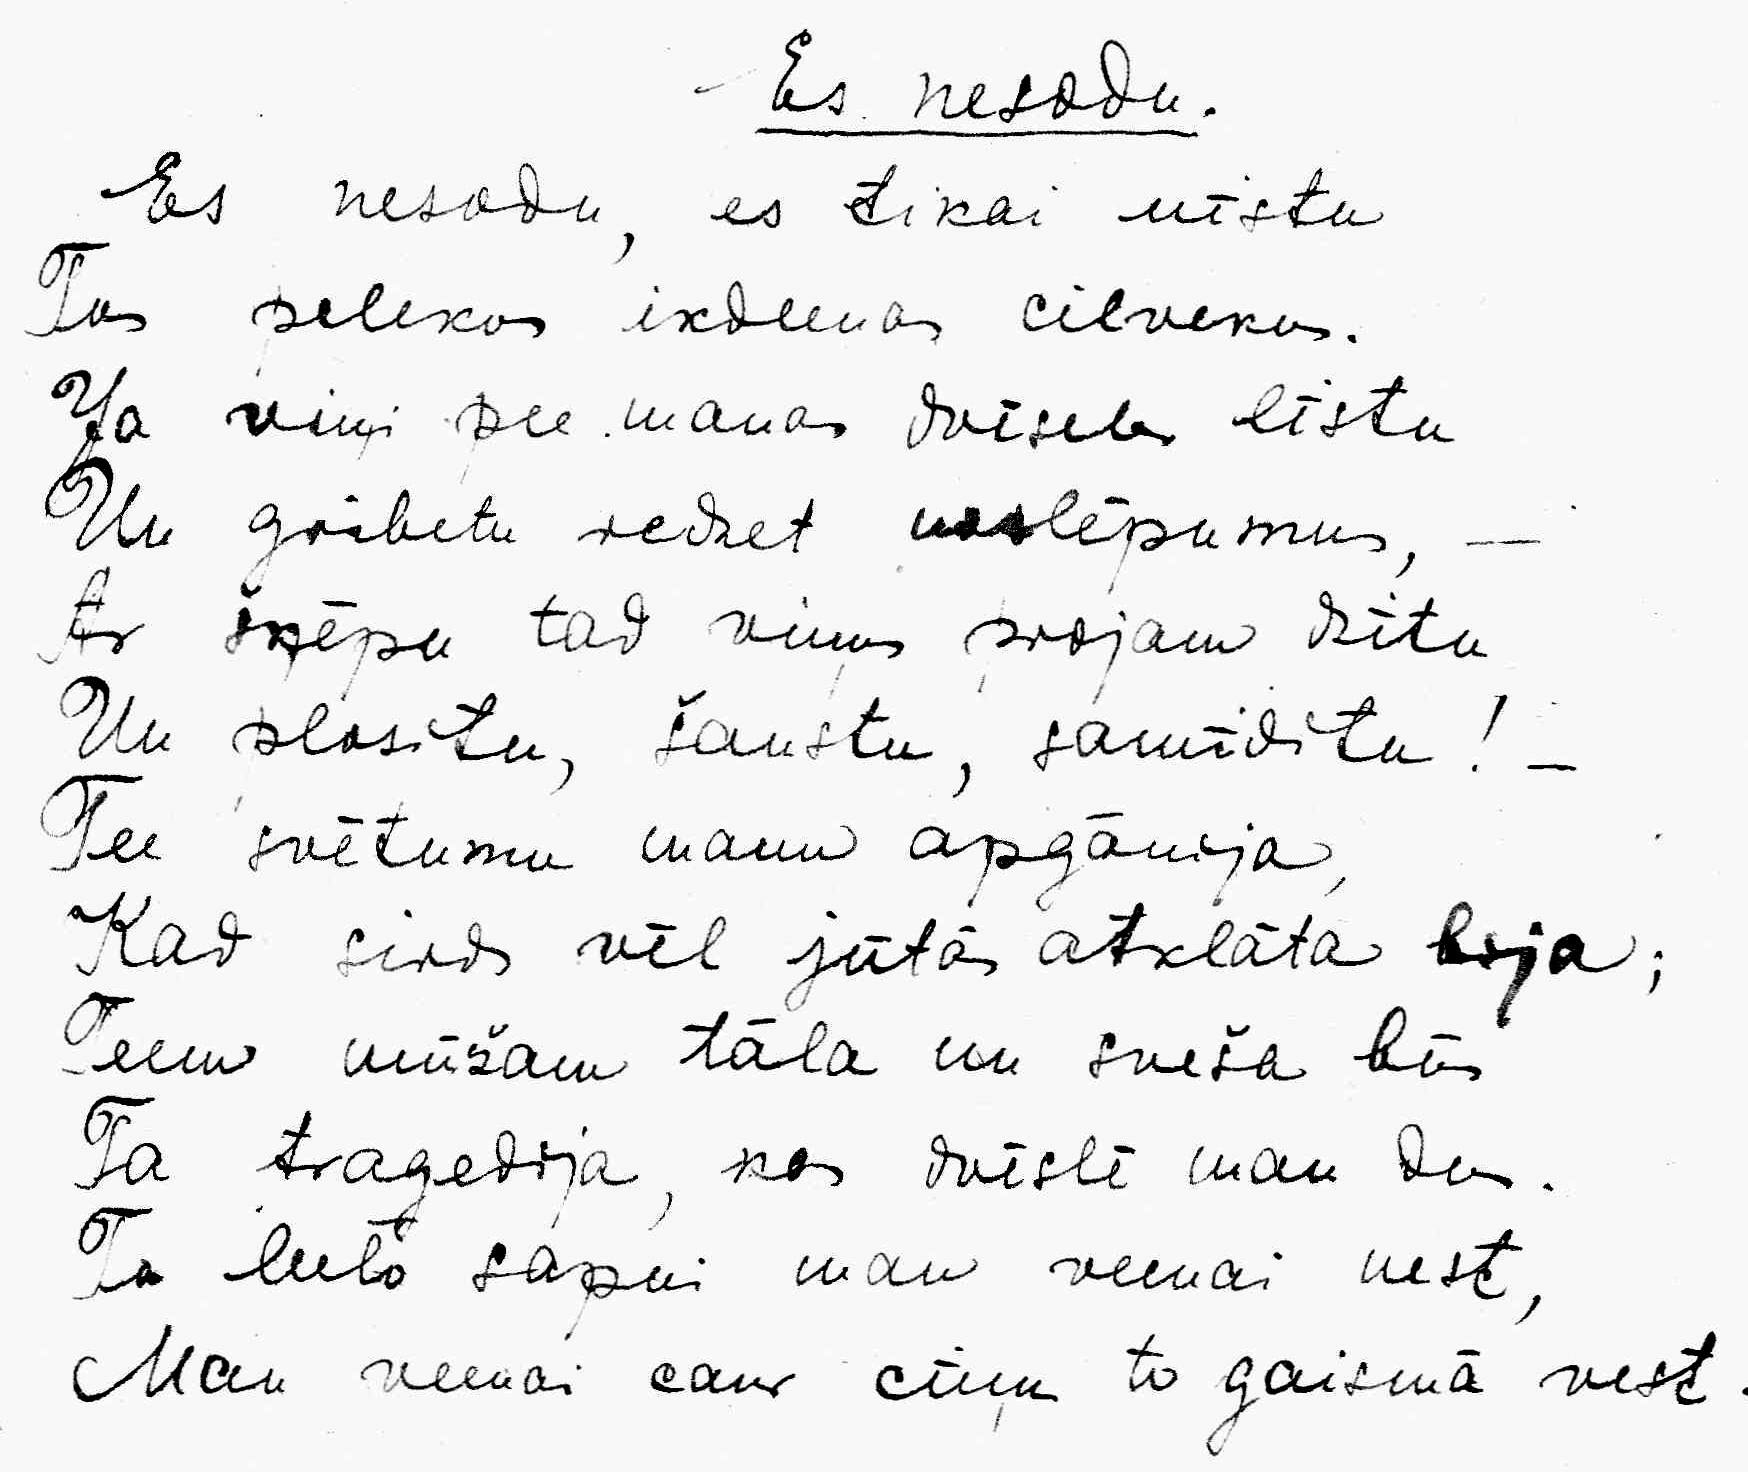 Es nesodu.
Es nesodu, es tikai nīstu
Tos pelekos ikdeenas cilvekus.
Ja viņi pee manas dvēseles līstu
Un gribetu redzet noslēpumus, —
Ar šķēpu tad viņus projam dzītu
Un plositu, šaustu, samīditu! —
Tee svētumu manu apgānija,
Kad sirds vēl jūtās atklāta bija;
Teem mūžam tāla un sveša būs
Ta tragedija, kas dvēslē man dus.
To leelo sapni man veenai nest,
Man veenai caur cīņu to gaismā vest.